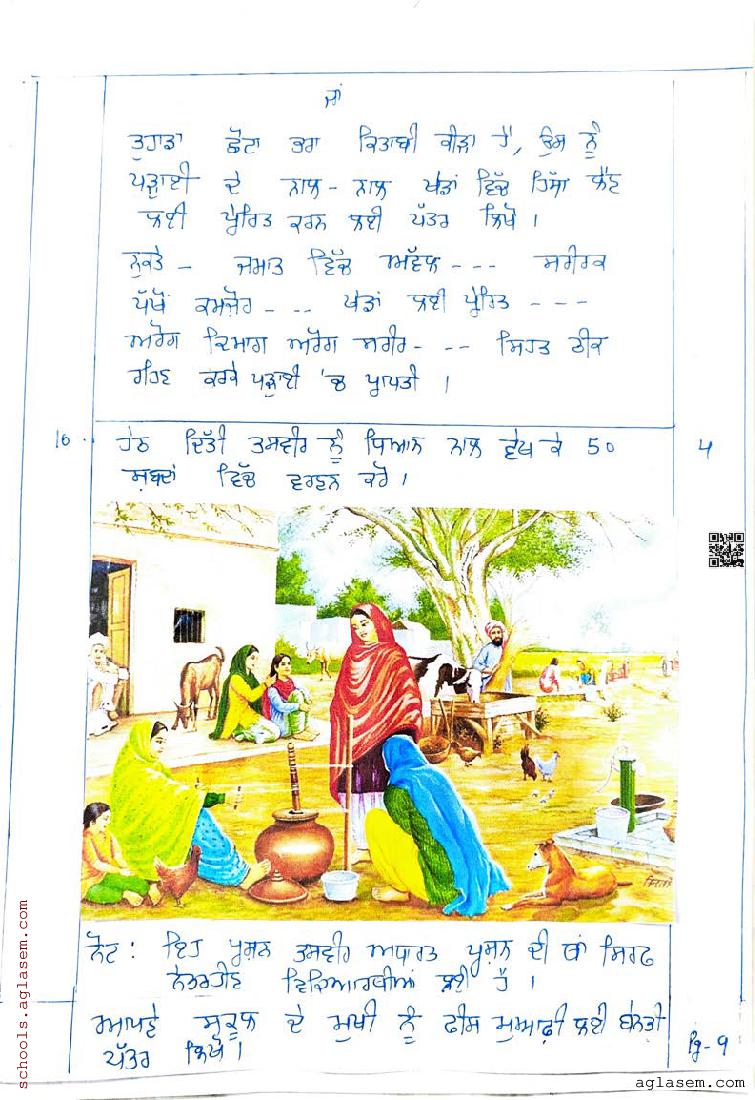 ਜਾਂ
ਤੁਹਾਡਾ ਛੋਟਾ ਭਰਾ ਕਿਤਾਬੀ ਕੀੜਾ ਹੈ, ਉਸ ਨੂੰ
ਪੜ੍ਹਾਈ ਦੇ ਨਾਲ-ਨਾਲ ਖੇਡਾਂ ਵਿੱਚ ਹਿੱਸਾ ਲੈਣ
ਲਈ ਪ੍ਰੇਰਿਤ ਕਰਨ ਲਈ ਪੱਤਰ ਲਿਖੋ ।
ਨੁਕਤੇ - ਜਮਾਤ ਵਿੱਚ ਅੱਵਲ --- ਸਰੀਰਕ
ਪੱਖੋਂ ਕਮਜ਼ੋਰ - -- ਖੇਡਾਂ ਲਈ ਪ੍ਰੇਰਿਤ ---
ਅਰੋਗ ਦਿਮਾਗ ਅਰੋਗ ਸਰੀਰ- -- ਸਿਹਤ ਠੀਕ
ਰਹਿਣ ਕਰਕੇ ਪੜ੍ਹਾਈ 'ਚ ਪ੍ਰਾਪਤੀ ।
16. ਹੇਠ ਦਿੱਤੀ ਤਸਵੀਰ ਨੂੰ ਧਿਆਨ ਨਾਲ ਵੇਖ ਕੇ 50 4
ਸ਼ਬਦਾਂ ਵਿੱਚ ਵਰਣਨ ਕਰੋ ।
ਨੋਟ : ਇਹ ਪ੍ਰਸ਼ਨ ਤਸਵੀਰ ਅਧਾਰਤ ਪ੍ਰਸ਼ਨ ਦੀ ਥਾਂ ਸਿਰਫ
ਨੇਤਰਹੀਣ ਵਿਦਿਆਰਥੀਆਂ ਲਈ ਹੈ ।
ਆਪਣੇ ਸਕੂਲ ਦੇ ਮੁਖੀ ਨੂੰ ਫੀਸ ਮੁਆਫ਼ੀ ਲਈ ਬੇਨਤੀ
ਪੱਤਰ ਲਿਖੋ ।
schools.aglasem.com
aglasem.com